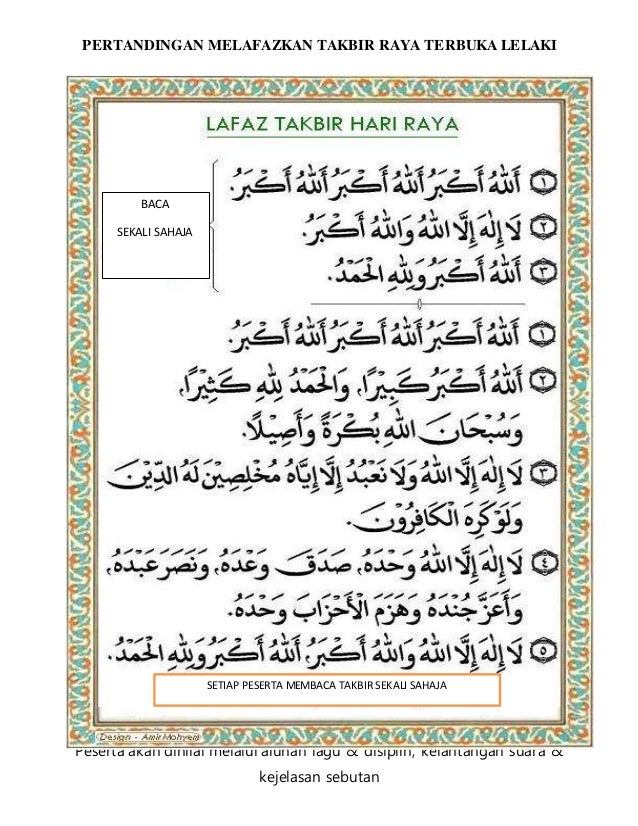 PERTANDINGAN MELAFAZKAN TAKBIR RAYA TERBUKA LELAKI
LAFAZ TAKBIR HARI RAYA
BACA
SEKALI SAHAJA
١ اَللهُ أَكْبَرُ اَللهُ أَكْبَرُ اَللهُ أَكْبَرُ.
٢ لَا إِلٰهَ إِلَّا اللهُ وَاللهُ أَكْبَرُ.
٣ اَللهُ أَكْبَرُ وَلِلّٰهِ الْحَمْدُ.
١ اَللهُ أَكْبَرُ اَللهُ أَكْبَرُ اَللهُ أَكْبَرُ.
٢ اَللهُ أَكْبَرُ كَبِيْرًا، وَالْحَمْدُ لِلّٰهِ كَثِيْرًا،
وَسُبْحَانَ اللهِ بُكْرَةً وَأَصِيْلًا.
٣ لَا إِلٰهَ إِلَّا اللهُ وَلَا نَعْبُدُ إِلَّا إِيَّاهُ مُخْلِصِيْنَ لَهُ الدِّيْنَ
وَلَوْ كَرِهَ الْكَافِرُوْنَ.
٤ لَا إِلٰهَ إِلَّا اللهُ وَحْدَهُ، صَدَقَ وَعْدَهُ، وَنَصَرَ عَبْدَهُ،
وَأَعَزَّ جُنْدَهُ وَهَزَمَ الْأَحْزَابَ وَحْدَهُ.
٥ لَا إِلٰهَ إِلَّا اللهُ وَاللهُ أَكْبَرُ، اَللهُ أَكْبَرُ وَلِلّٰهِ الْحَمْدُ.
SETIAP PESERTA MEMBACA TAKBIR SEKALI SAHAJA
Design - Amir Mohyem
Peserta akan dinilai melalui alunan lagu & disiplin, kelantangan suara &
kejelasan sebutan